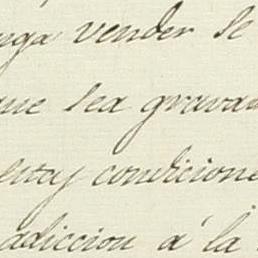 nga vender se
que sea gravam
entas condicione
adiccion á la